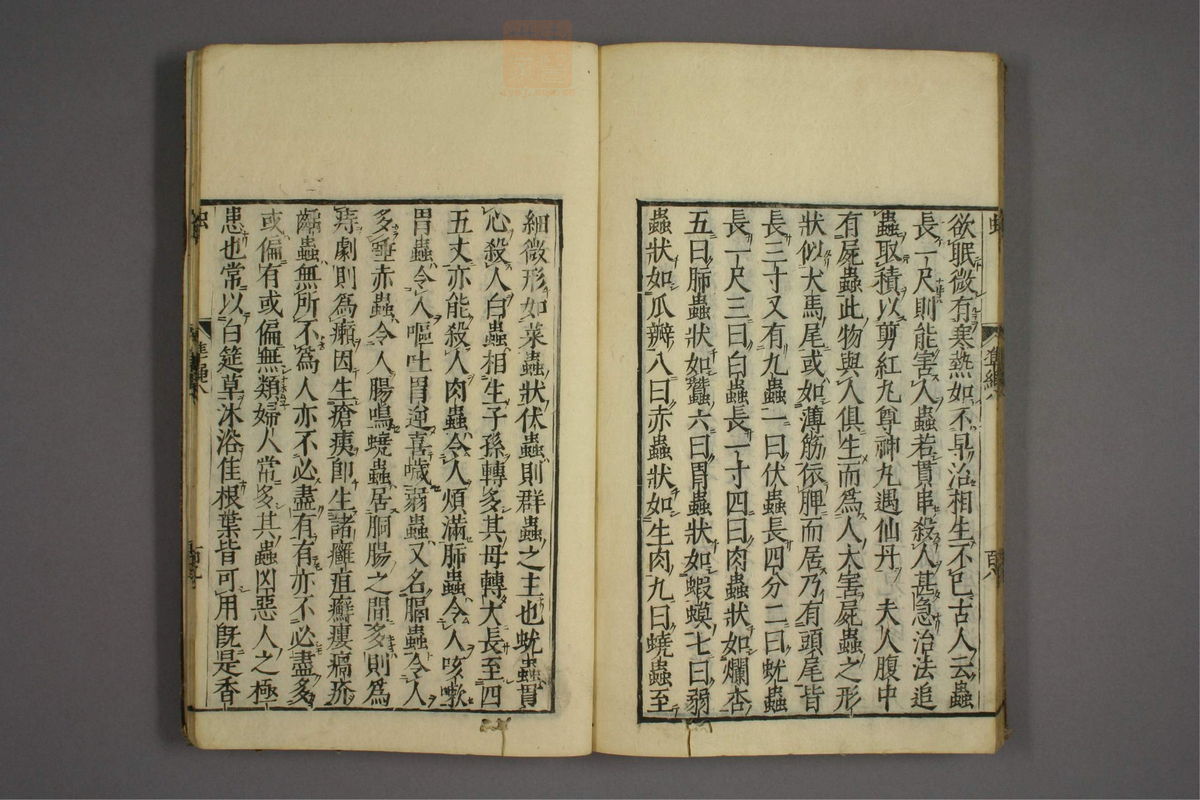 欲眠微有寒熱如不早治相生不已古人云蟲
長一尺則能害人蟲若貫串殺人甚急治法追
蟲取積以剪紅丸尊神丸遇仙丹　夫人腹中
有屍蟲此物與人俱生而為人大害屍蟲之形
狀似犬馬尾或如薄筋依脾而居乃有頭尾皆
長三寸又有九蟲一曰伏蟲長四分二曰蚘蟲
長一尺三曰白蟲長一寸四曰肉蟲狀如爛杏
五曰肺蟲狀如蠶六曰胃蟲狀如蝦蟆七曰弱
蟲狀如瓜瓣八曰赤蟲狀如生肉九曰蟯蟲至
細微形如菜蟲狀伏蟲則群蟲之主也蚘蟲胃
心殺人白蟲相生子孫轉多其母轉大長至四
五丈亦能殺人肉蟲令人煩滿肺蟲令人咳嗽
胃蟲令人嘔吐胃逆喜噦弱蟲又名膈蟲令人
多唾赤蟲令人腸鳴蟯蟲居胴腸之間多則為
痔劇則為癩因生瘡痍即生諸癰疽癬瘻瘑疥
齲蟲無所不為人亦不必盡有有亦不必盡多
或偏有或偏無類婦人常多其蟲凶惡人之極
患也常以白筵草沐浴佳根葉皆可用既是香